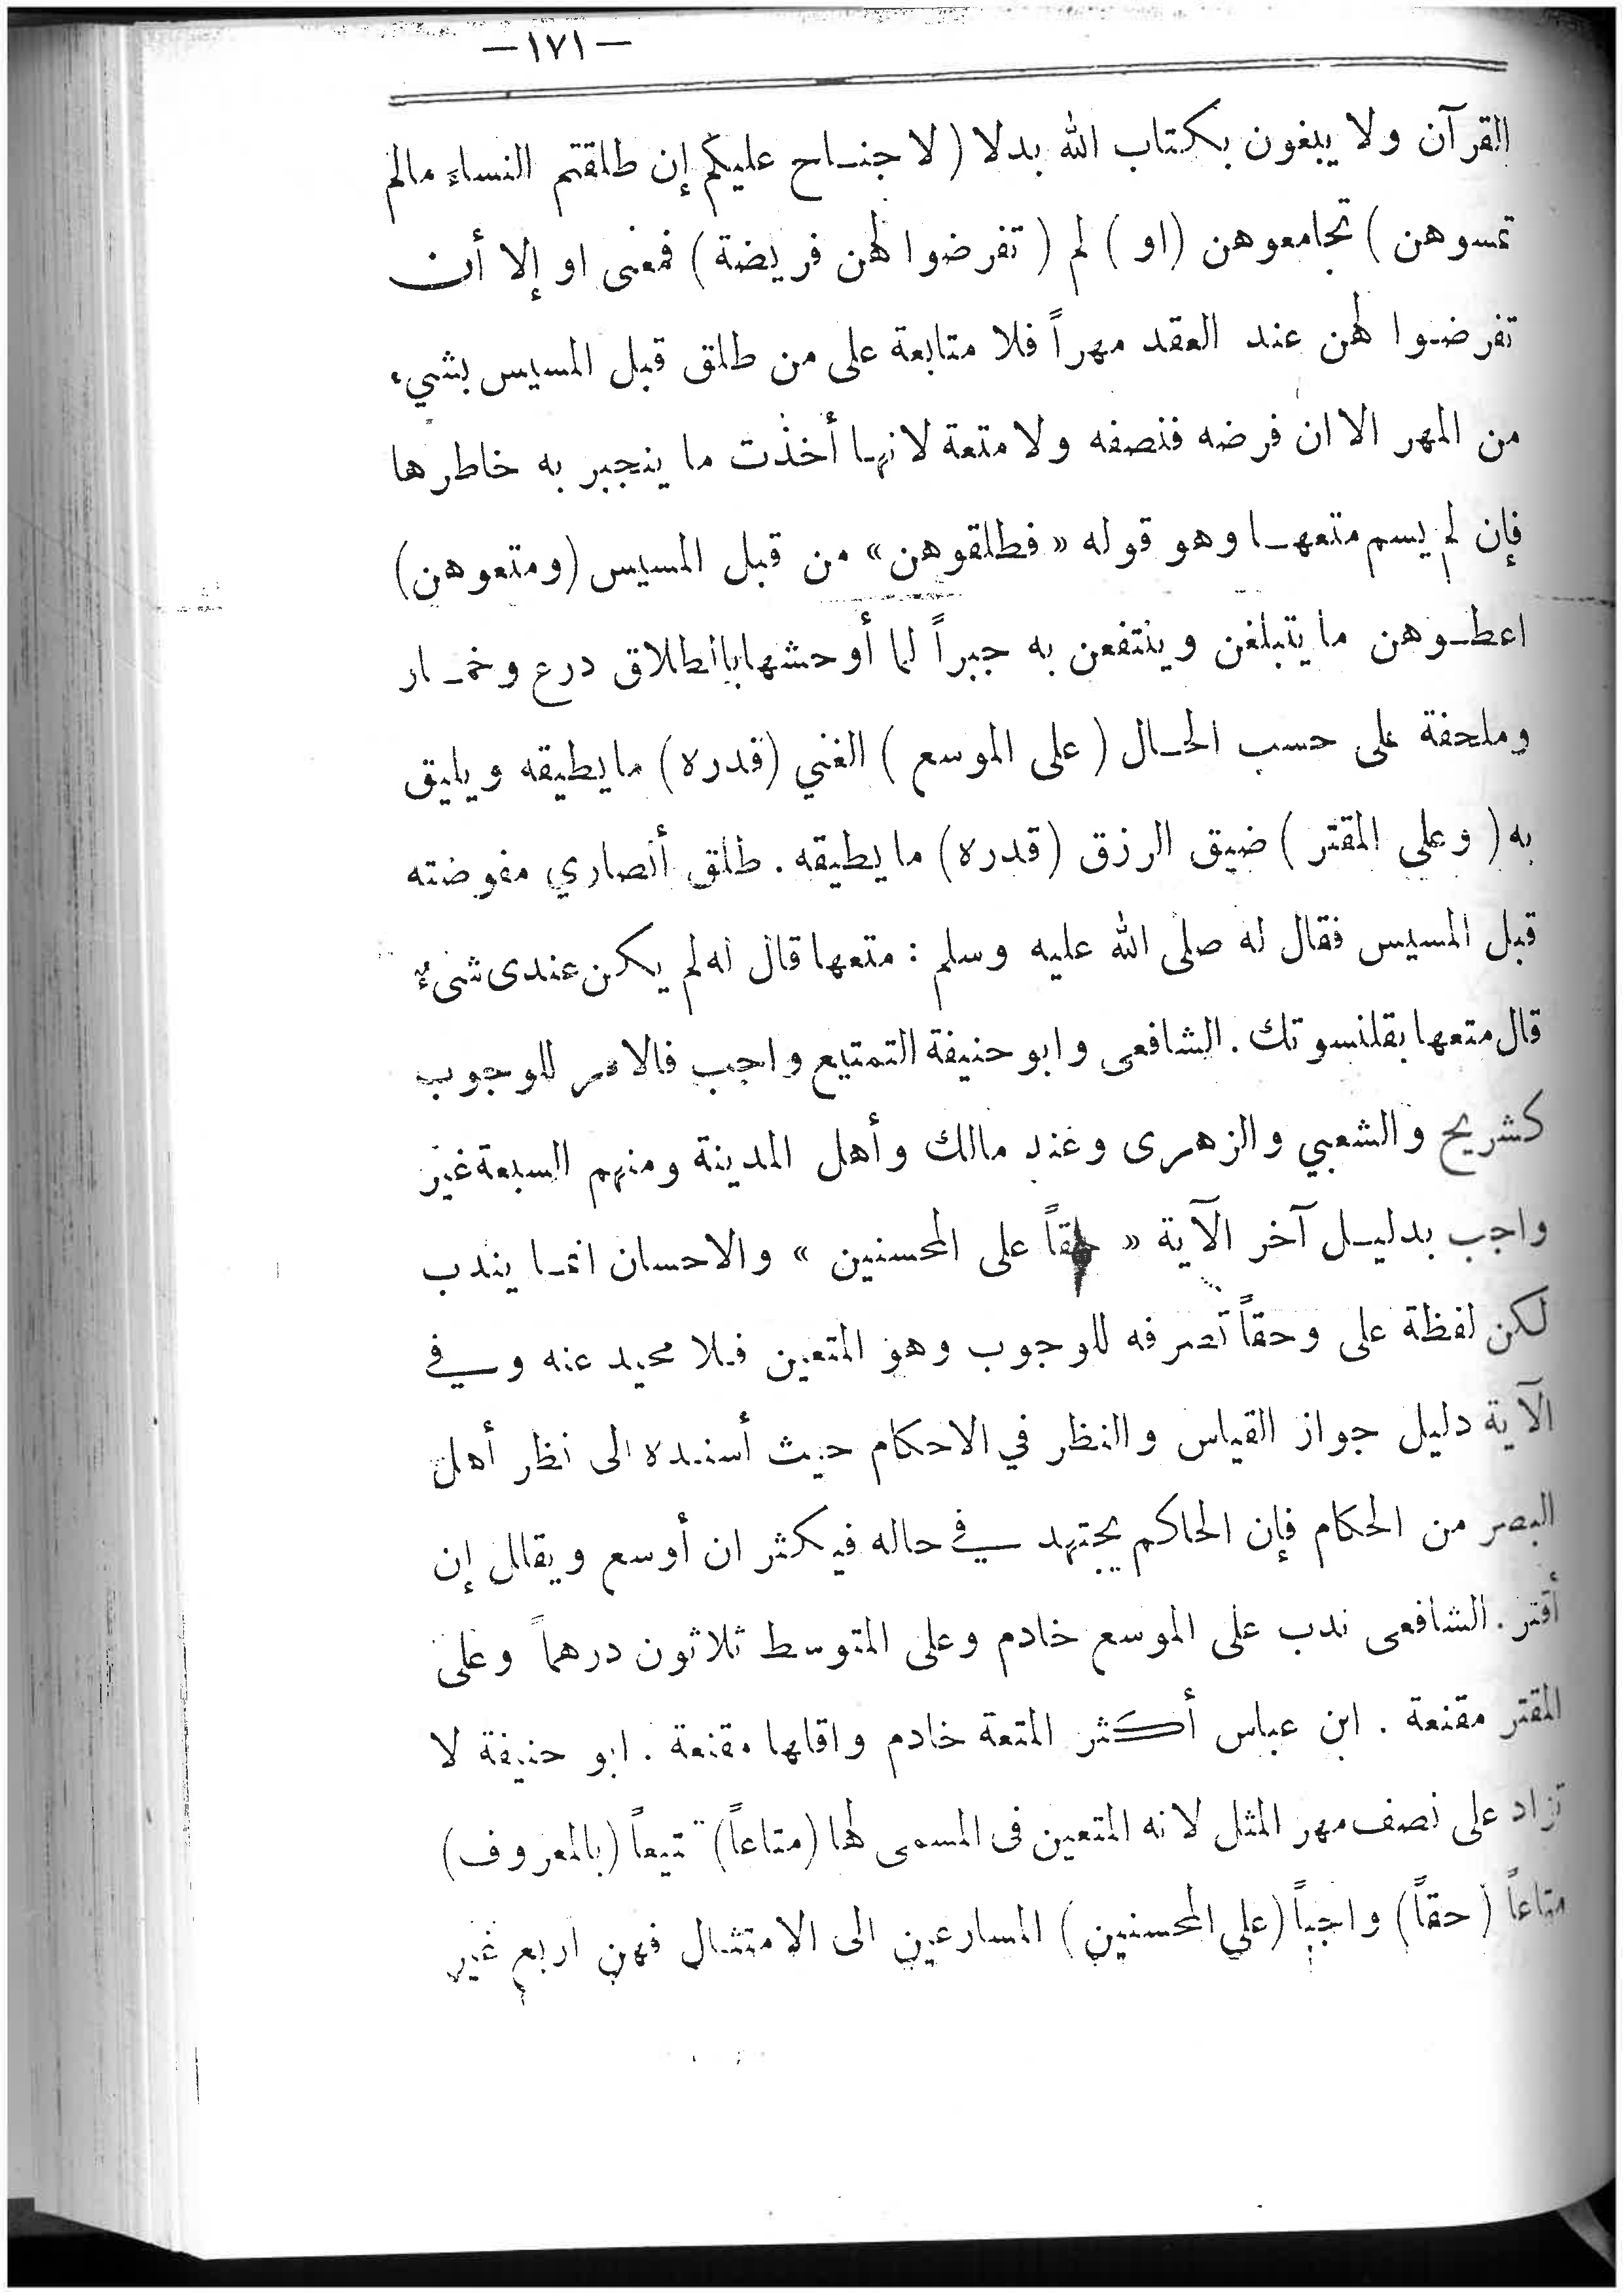 —١٧١—
القرآن ولا يبغون بكتاب الله بدلا ( لا جنـاح عليكم إن طلقتم النساء مالم
تمسوهن ) تجامعوهن (او ) لم ( تفرضوا لهن فريضة ) فمعنى او إلا أن
تفرضوا لهن عند العقد مهراً فلا متابعة على من طلق قبل المسيس بشيء
من المهر الا ان فرضه فنصفه ولا متعة لانها أخذت ما ينجبر به خاطرها
فإن لم يسم متعهـا وهو قوله « فطلقوهن » من قبل المسيس (ومتعوهن)
اعطـوهن ما يتبلغن وينتفعن به جبراً لما أوحشها بالطلاق درع وخمـار
وملحفة على حسب الحـال ( على الموسع ) الغني (قدره) ما يطيقه ويليق
به ( وعلى المقتر ) ضيق الرزق (قدره) ما يطيقه . طلق أنصاري مفوضته
قبل المسيس فقال له صلى الله عليه وسلم : متعها قال له لم يكن عندى شىء
قال متعها بقلنسوتك . الشافعى وابو حنيفة التمتيع واجب فالامر للوجوب
كشريح والشعبي والزهرى وعند مالك وأهل المدينة ومنهم السبعة غير
واجب بدليـل آخر الآية « حقاً على المحسنين » والاحسان انمـا يندب
لكن لفظة على وحقاً تصرفه للوجوب وهو المتعين فلا محيد عنه وفي
الآية دليل جواز القياس والنظر في الاحكام حيث أسنده الى نظر أهل
البصر من الحكام فإن الحاكم يجتهد في حاله فيكثر ان أوسع ويقلل إن
أقتر . الشافعى ندب على الموسع خادم وعلى المتوسط ثلاثون درهماً وعلى
المقتر مقنعة . ابن عباس أكثر المتعة خادم واقلها مقنعة . ابو حنيفة لا
تزاد على نصف مهر المثل لانه المتعين فى المسمى لها (متاعاً) تمتيعاً (بالمعروف)
متاعاً ( حقاً ) واجباً (على المحسنين ) المسارعين الى الامتثال فهن اربع غير